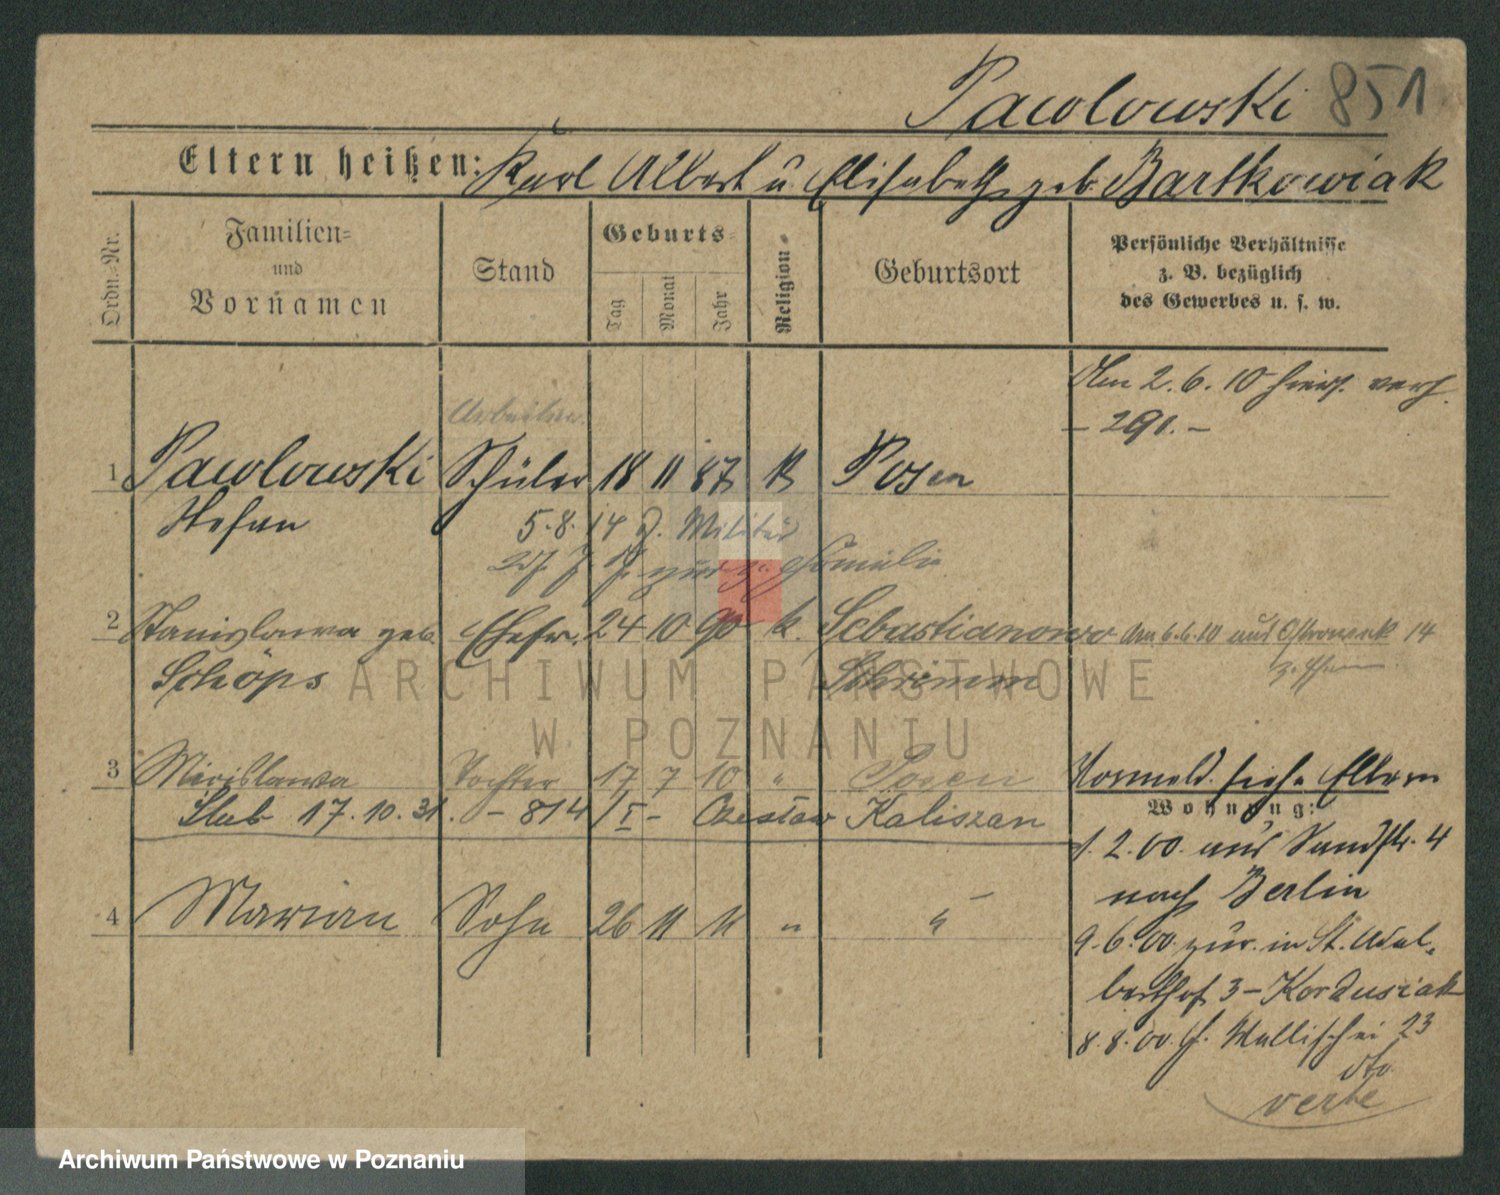 Pawlowski 851
Eltern heißen: Karl Albert u. Elisabeth geb Bartkowiak
Ordn.-Nr.
Familien-
und
Vornamen
Stand
Geburts-
Tag
Monat
Jahr
Religion
Geburtsort
Persönliche Verhältnisse
z. B. bezüglich
des Gewerbes u. s. w.
Am 2.6.10 hier verh.
- 291.-
Arbeiter
1 Pawlowski Schüler 18 11 87 K Posen
Stefan
5.8.14 z. Militär
Familie
2 Stanislawa geb. Ehefr. 24 10 90 k. Sebastianowo Am 6.6.10 aus 14
Schöps Schrimm
3 Mirislawa Tochter 17 7 10 " Posen
Ślub 17.10.31. - 814 /I - Czesław Kaliszan
4 Marian Sohn 26 11 11 " "
Vormeld. siehe Eltern
Wohnung:
1.2.00. aus Sandstr. 4
nach Berlin
9.6.00. zur. in St. Adal-
berthof 3 - Kordusiak
8.8.00. Wallischei 23
dto
verte
ARCHIWUM PAŃSTWOWE
W POZNANIU
Archiwum Państwowe w Poznaniu